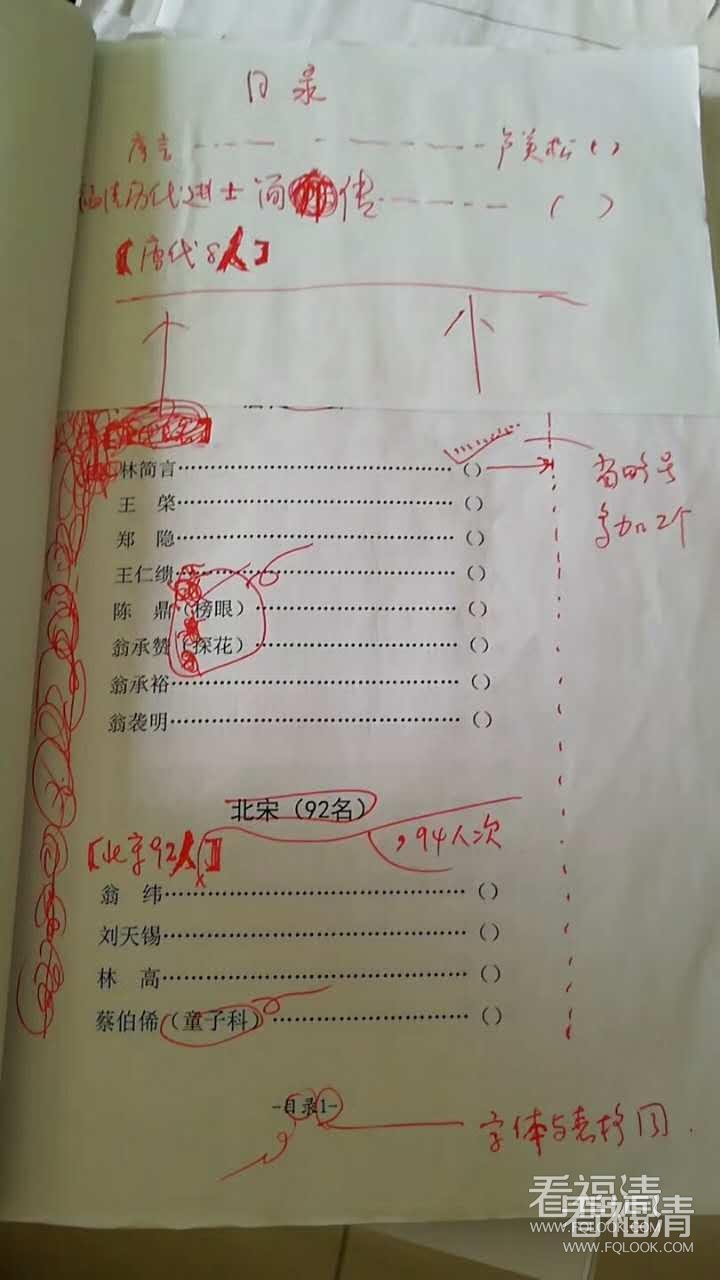 目录
序言 卢美松（）
福清历代进士简传（ ）
【唐代8人】
林简言……（）
王　棨……（）
省略号
多加2个
郑　隐……（）
王仁缋……（）
陈　鼎（榜眼）……（）
翁承赞（探花）……（）
翁承裕……（）
翁袭明……（）
北宋（92名）
【北宋92人】，94人次
翁　纬……（）
刘天锡……（）
林　高……（）
蔡伯俙（童子科）……（）
-目录1-
字体与表格同.
看福清
WWW.FQLOOK.COM
看福清
WWW.FQLOOK.COM